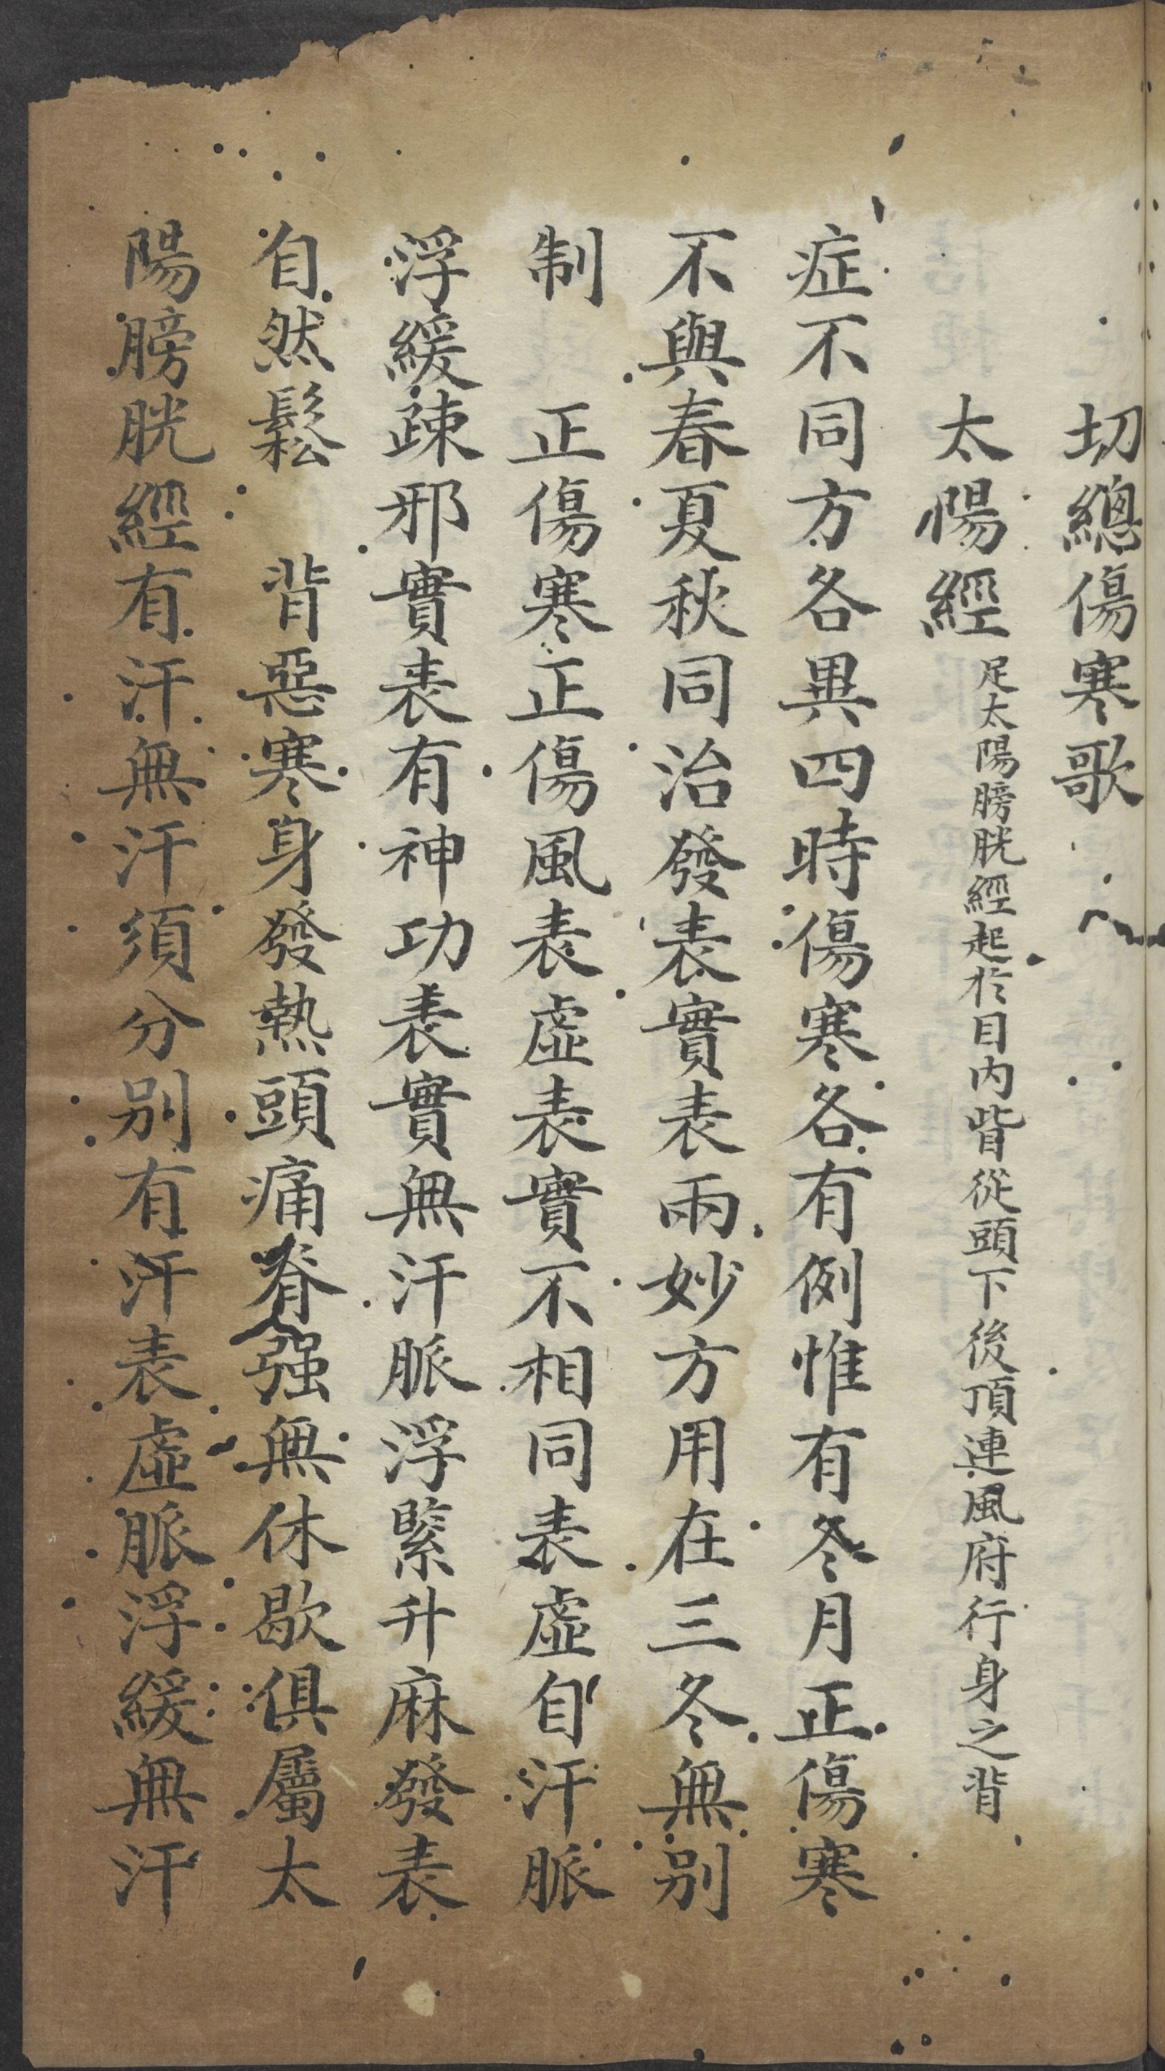 切總傷寒歌
太陽經 足太陽膀胱經起於目內眥從頭下後頂連風府行身之背
症不同方各異四時傷寒各有例惟有冬月正傷寒
不與春夏秋同治發表實表兩妙方用在三冬無别
制 正傷寒正傷風表虛表實不相同表虛自汗脈
浮緩疎邪實表有神功表實無汗脈浮緊升麻發表
自然鬆 背惡寒身發熱頭痛脊强無休歇俱屬太
陽膀胱經有汗無汗須分别有汗表虛脈浮緩無汗